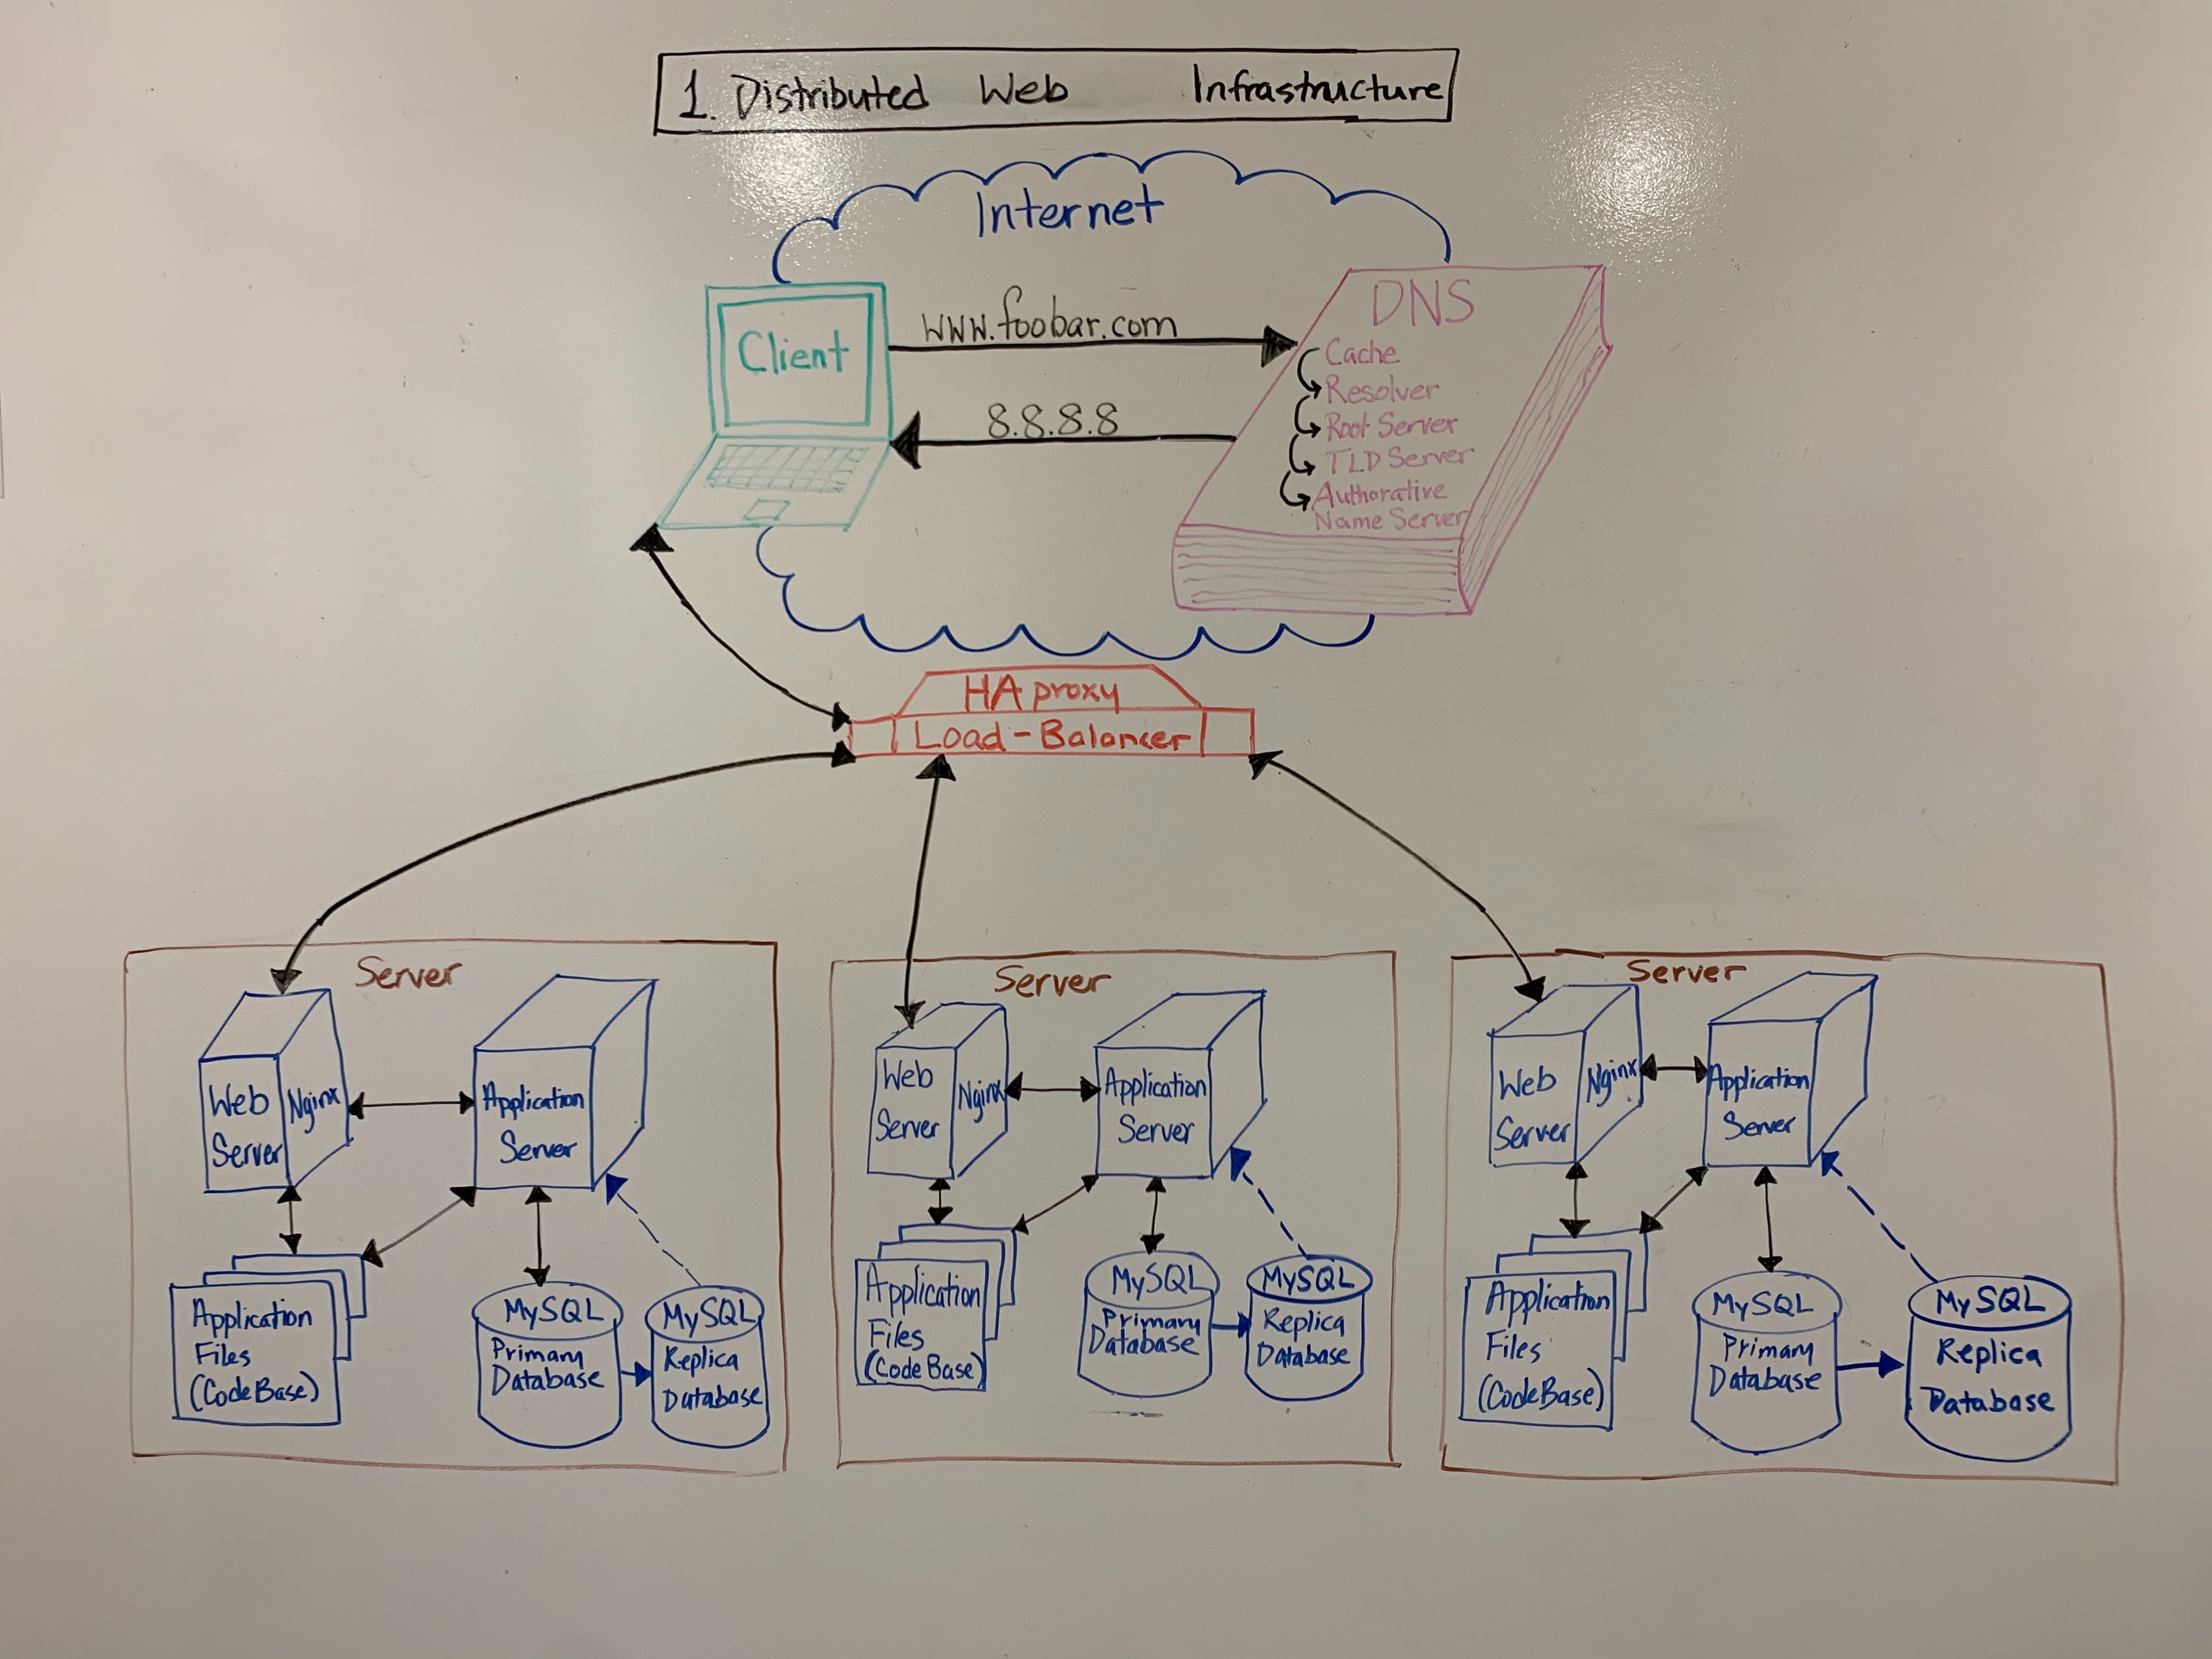 1. Distributed Web Infrastructure
Internet
Client
www.foobar.com
8.8.8.8
DNS
Cache
Resolver
Root Server
TLD Server
Authorative
Name Server
HA proxy
Load-Balancer
Server
Web
Server
Nginx
Application
Server
Application
Files
(CodeBase)
MySQL
Primary
Database
MySQL
Replica
Database
Server
Web
Server
Nginx
Application
Server
Application
Files
(CodeBase)
MySQL
Primary
Database
MySQL
Replica
Database
Server
Web
Server
Nginx
Application
Server
Application
Files
(CodeBase)
MySQL
Primary
Database
MySQL
Replica
Database